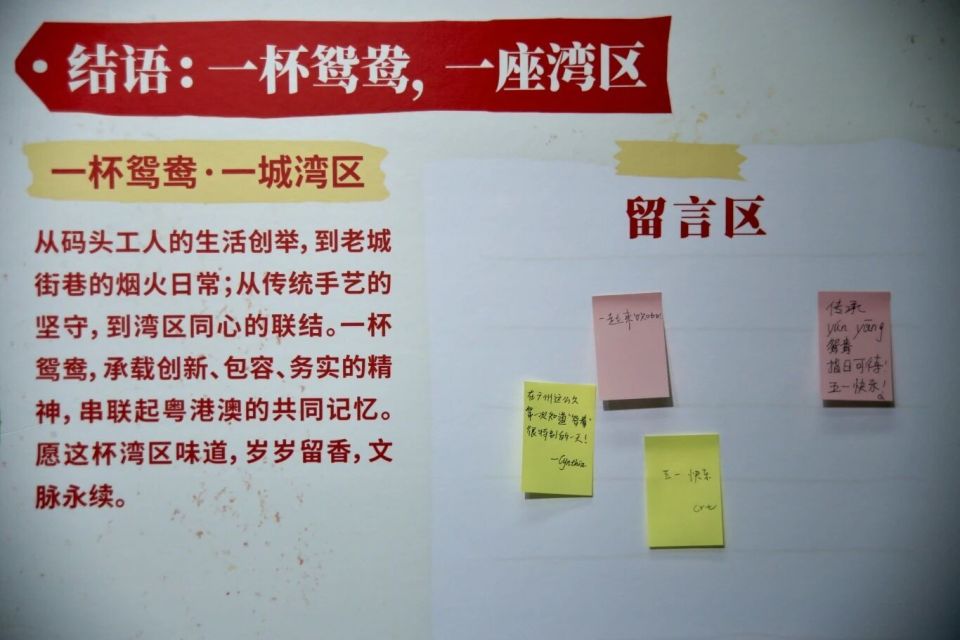 结语：一杯鸳鸯，一座湾区
一杯鸳鸯·一城湾区
从码头工人的生活创举，到老城
街巷的烟火日常；从传统手艺的
坚守，到湾区同心的联结。一杯
鸳鸯，承载创新、包容、务实的精
神，串联起粤港澳的共同记忆。
愿这杯湾区味道，岁岁留香，文
脉永续。
留言区
一起来
传承
yuān yāng
鸳鸯
指日可待！
五一快乐！
在广州这么久
第一次知道“鸳鸯”
很特别的一天！
—Cynthia
五一快乐